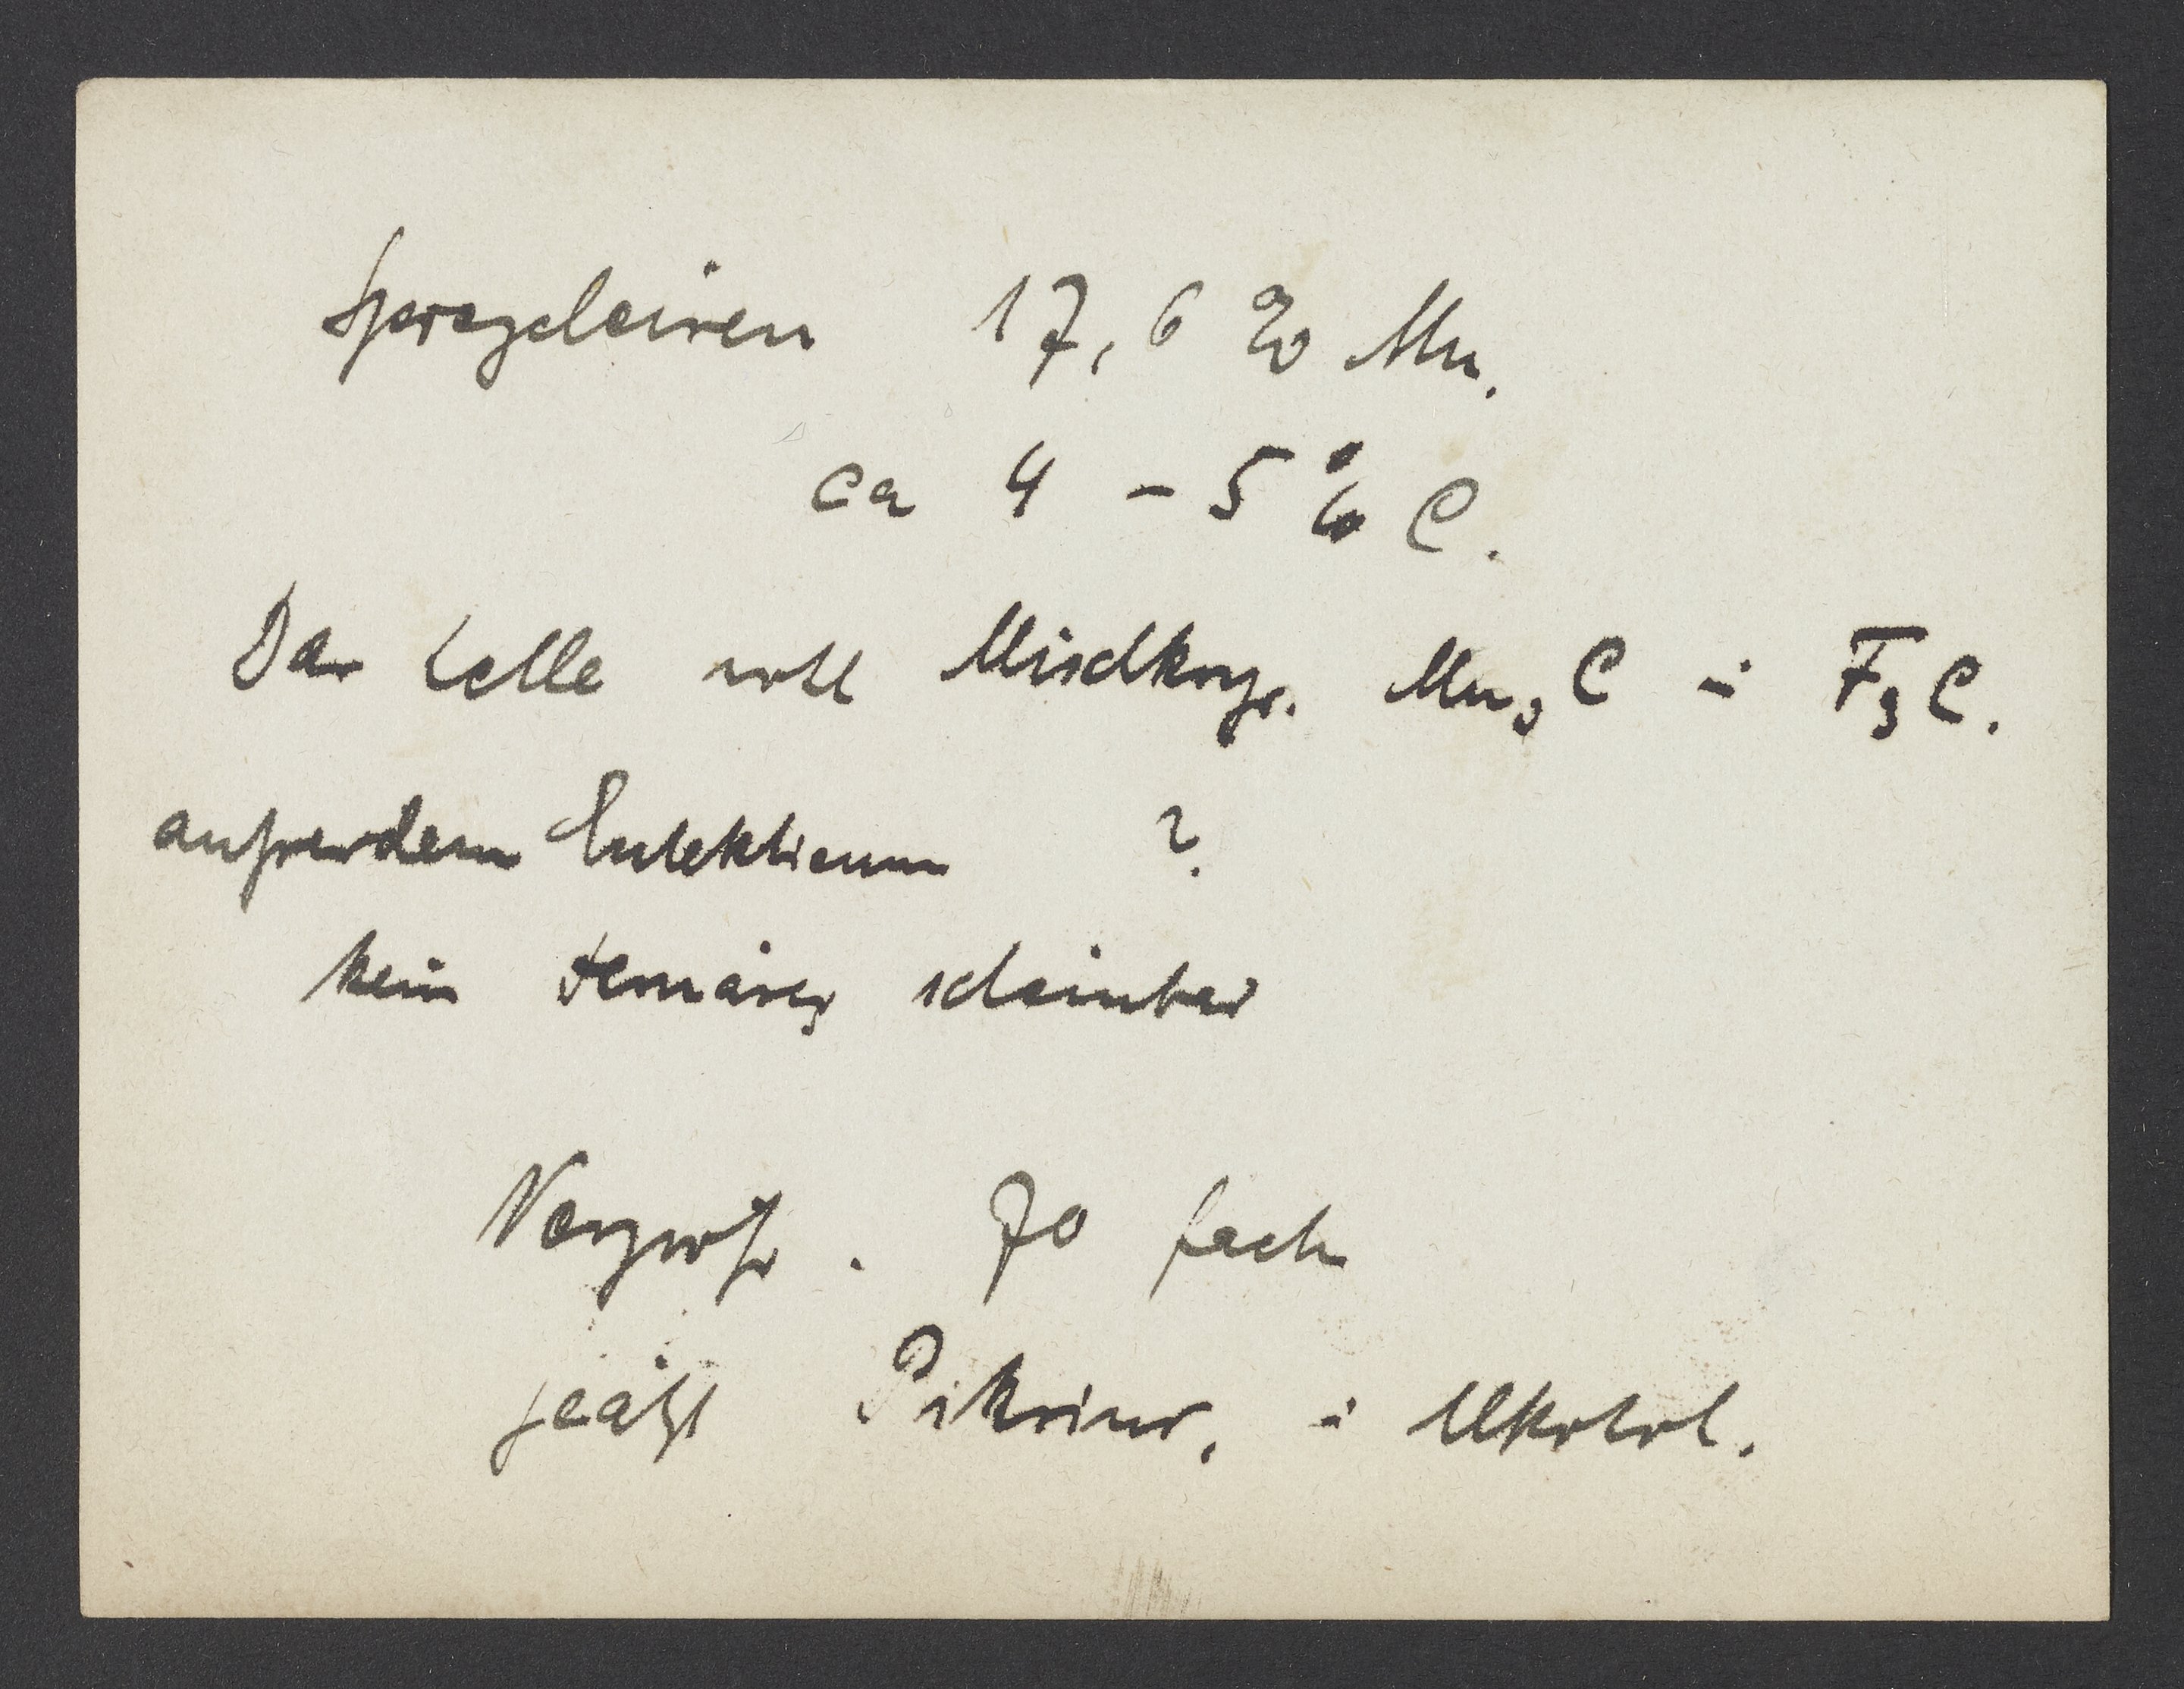 Spiegeleisen 17,6 % Mn.
ca 4 – 5 % C.
Das helle wohl Mischkrys. Mn₃C – F₃C.
außerdem Eutektikum ?
kein ternäres scheinbar
Vergröß. 70 fach
geätzt Pikrins. i Alkohol.